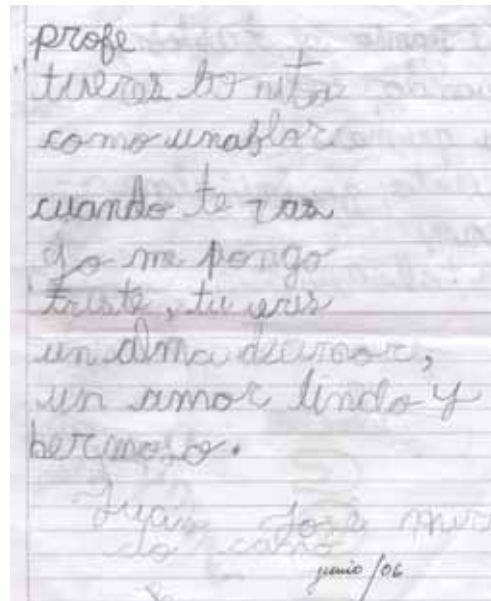 profe
tueres bonita
como unaflor
cuando te vas
yo me pongo
triste, tu eres
un alma deamor,
un amor lindo y
hermoso.
Juan José
junio /06